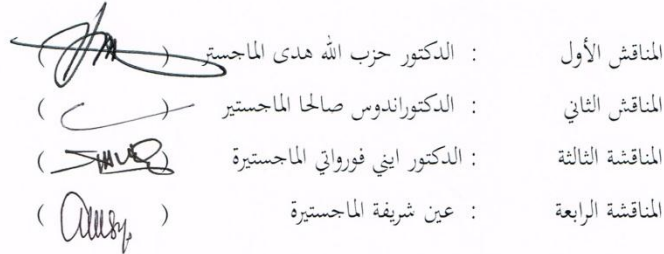 المناقش الأول : الدكتور حزب الله هدى الماجستر ( )
المناقش الثاني : الدكتوراندوس صالحا الماجستير ( )
المناقشة الثالثة : الدكتور ايني فورواتي الماجستيرة ( )
المناقشة الرابعة : عين شريفة الماجستيرة ( )